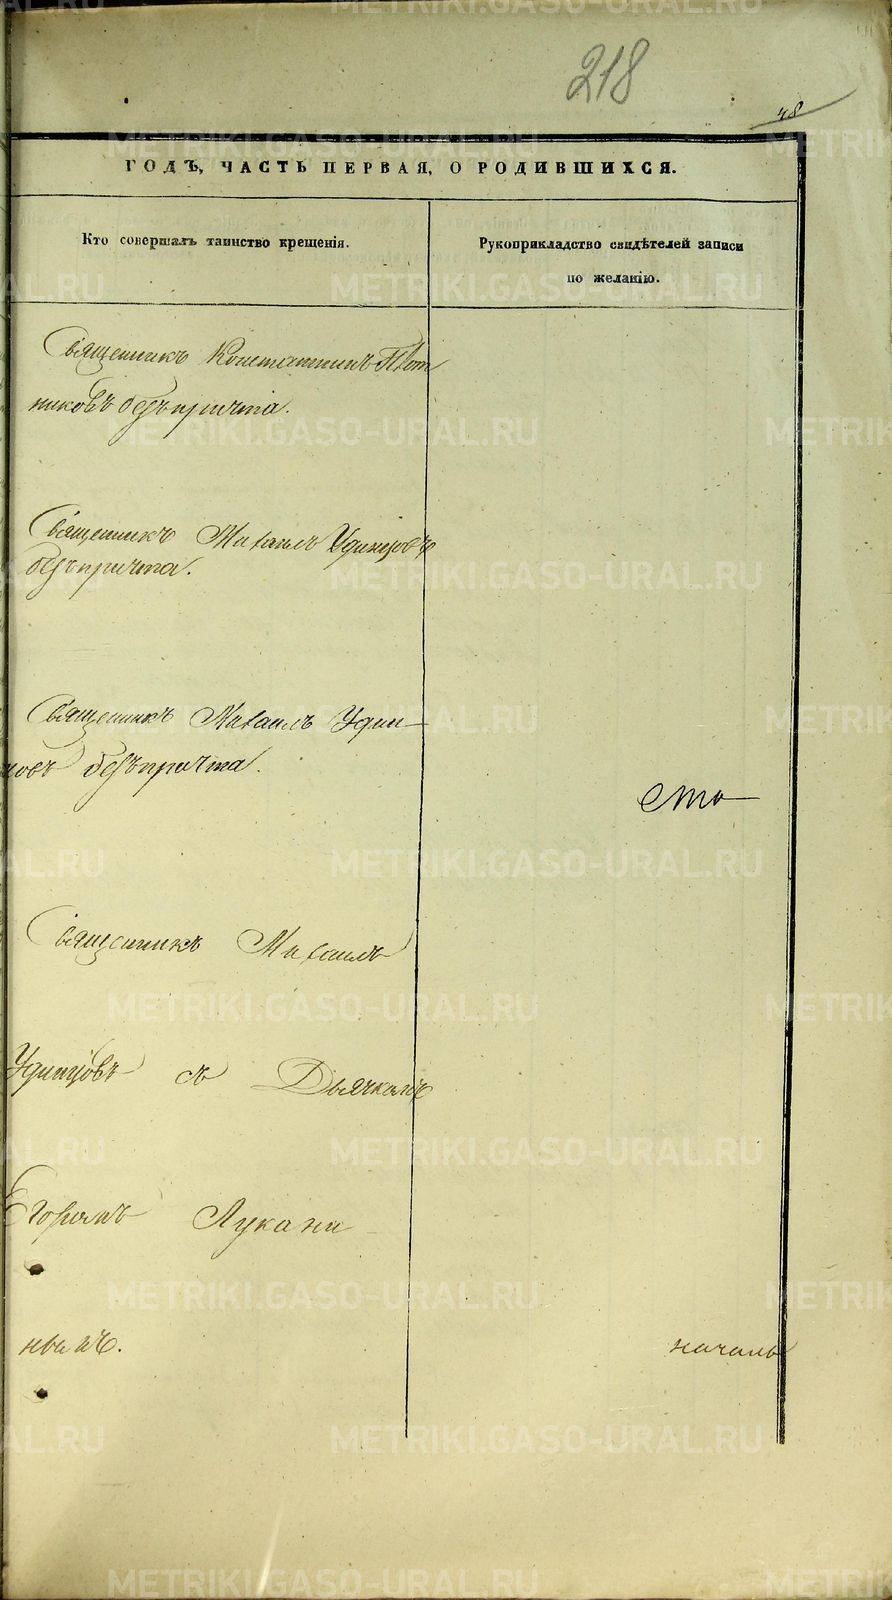 218
48
ГОДЪ, ЧАСТЬ ПЕРВАЯ, О РОДИВШИХСЯ.
Кто совершалъ таинство крещенія.
Рукоприкладство свидѣтелей записи
по желанію.
Священникъ Константинъ Плот
никовъ безъ причта.
Священникъ Михаилъ Удинцовъ
безъ причта.
Священникъ Михаилъ Удин-
цовъ безъ причта.
сто
Священникъ Михаилъ
Удинцовъ съ Дьячкомъ
Егоромъ Лукани
нымъ.
началь
METRIKI.GASO-URAL.RU